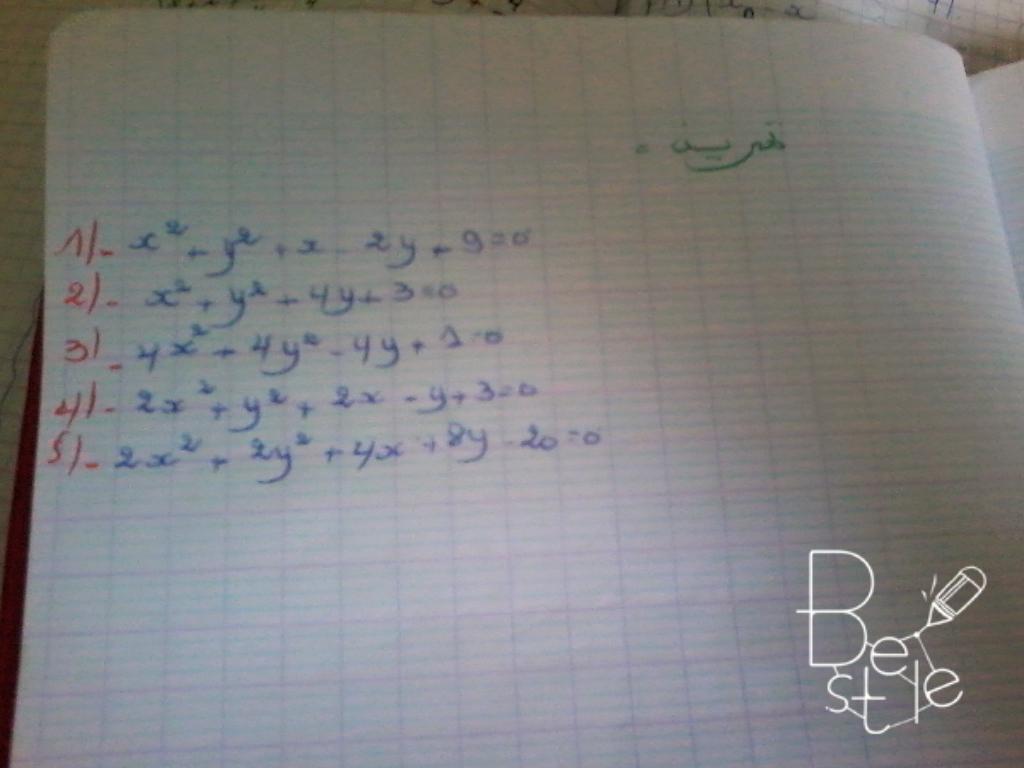 تمرين :
1)- x² + y² + x - 2y + 9 = 0
2)- x² + y² + 4y + 3 = 0
3)- 4x² + 4y² - 4y + 1 = 0
4)- 2x² + y² + 2x - y + 3 = 0
5)- 2x² + 2y² + 4x + 8y - 20 = 0
Be
style